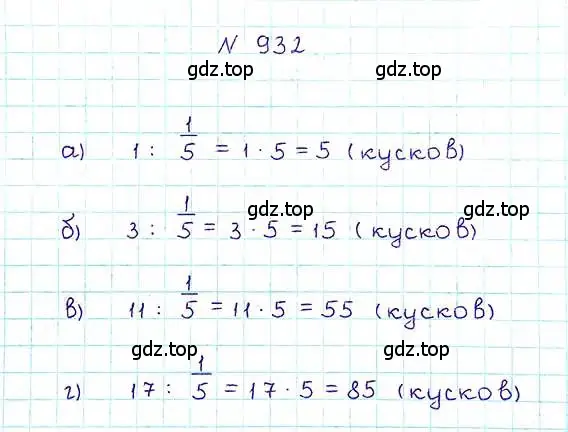 N 932
gdz.top gdz.top
а) 1 : 1/5 = 1 · 5 = 5 (кусков)
gdz.top gdz.top
б) 3 : 1/5 = 3 · 5 = 15 (кусков)
в) 11 : 1/5 = 11 · 5 = 55 (кусков)
gdz.top gdz.top
г) 17 : 1/5 = 17 · 5 = 85 (кусков)